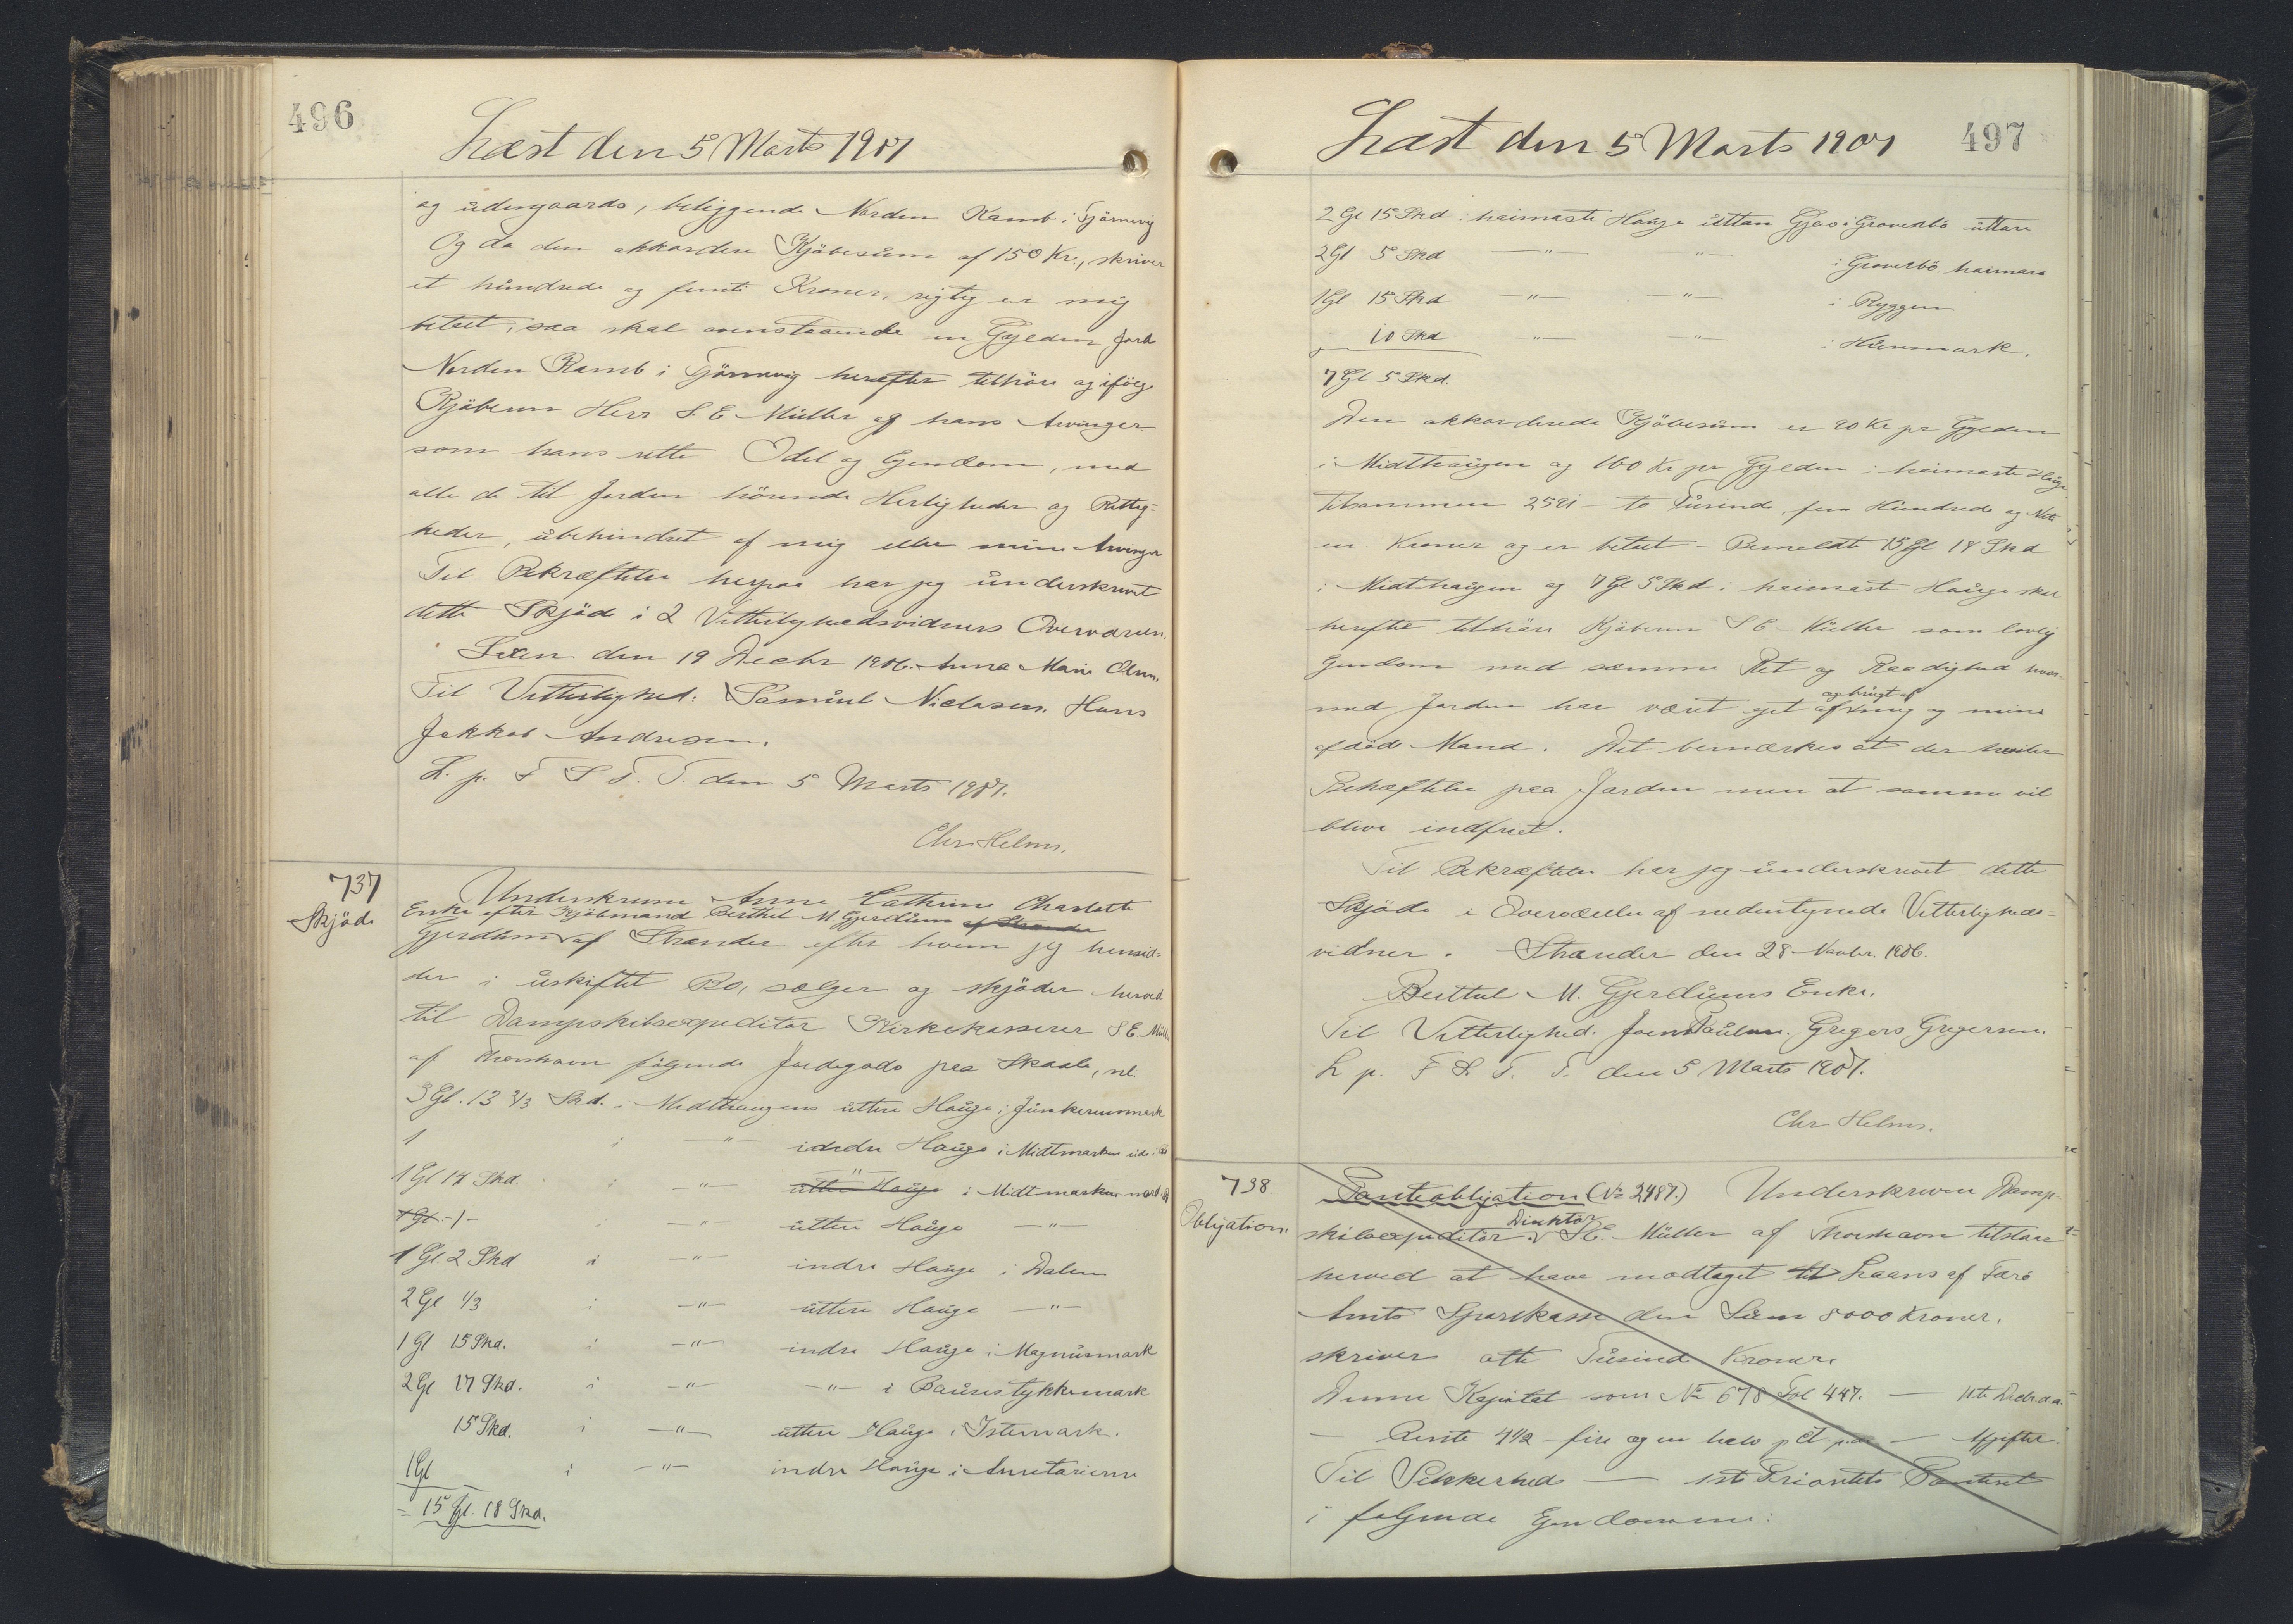 496
Læst den 5 Marts 1907
og udengaards, beliggende Norden Kamb i Tjörnevig
Og da den akkorderede Kjöbesum af 150 Kr., skriver
et hundrede og femti Kroner, rigtig er mig
betalt, saa skal ovenstaaende en Gylden Jord
Norden Kamb i Tjörnevig herefter tilhöre og ifölge
Kjöberen Herr S. E. Müller og hans Arvinger
som hans rette Odel og Ejendom, med
alle de til Jorden hörende Herligheder og Rettig-
heder, ubehindret af mig eller mine Arvinger
Til Bekræftelse herpaa har jeg underskrevet
dette Skjöde i 2 Vitterlighedsvidners Overværelse.
den 19 Decbr 1906. Anna Marie Olsen.
Til Vitterlighed: Samuel Niclasen. Hans
Jakkob Andresen.
L. p. F. S. T. T. den 5 Marts 1907.
Chr. Helms.
737
Skjöde
Underskrevne Anne Cathrine Charlotte
Enke efter Kjöbmand Berthel M Gjerdum af Strander
Gjerdum af Strander efter hvem jeg hensid-
der i uskiftet Bo, sælger og skjöder herved
til Dampskibsexpeditör Kirkekasserer S E. Müller
af Thorshavn fölgende Jordegods paa Skaale, nl.
3 Gl. 13 2/3 Skd. i Midthaugens uttere Hauge i Junkerensmark
1 i —"— indre Hauge i Midtmarken
1 Gl 14 Skd. i —"— uttere Hauge i Midtmarken
1 Gl. - 1 - —"— uttere Hauge —"—
1 Gl 2 Skd i —"— indre Hauge i Dalen
2 Gl 1/3 i —"— uttere Hauge —"—
1 Gl 15 Skd. i —"— indre Hauge i Magnusmark
2 Gl 17 Skd. i —"— —"— i Baurestykkemark
15 Skd. i —"— uttere Hauge i Istemark.
1 Gl i —"— indre Hauge i
= 15 Gl. 18 Skd.
497
Læst den 5 Marts 1907
2 Gl 15 Skd i heimaste Hauge uttan Gjao i Grovenbö uttare
2 Gl 5 Skd —"— —"— i Grovenbö heimara
1 Gl 15 Skd —"— —"— i Ryggen
10 Skd —"— —"— i Hunsmark.
7 Gl 5 Skd.
Den akkorderede Kjöbesum er 90 Kr pr Gylden
i Midthaugen og 160 Kr pr Gylden i heimaste Hauge
tilsammen 2591 - to Tusinde fem Hundrede og Niti
en Kroner og er betalt - Bemeldte 15 Gl 18 Skd
i Midthaugen og 7 Gl 5 Skd i heimaste Hauge skal
herefter tilhöre Kjöberen S E Müller som lovlig
Ejendom med samme Ret og Raadighed hvor-
med Jorden har været ejet af og brugt af mig og min
afdöde Mand. Det bemærkes at der hviler
Behæftelse paa Jorden men at samme vil
blive indfriet.
Til Bekræftelse har jeg underskrevet dette
Skjöde i Overværelse af nedentegnede Vitterligheds-
vidner. Strander den 28 Novbr. 1906.
Berthel M. Gjerdums Enke.
Til Vitterlighed. Joen Paulsen. Gregers Gregersen.
L p. F S. T. T. den 5 Marts 1907.
Chr Helms.
738.
Obligation.
Panteobligation (No 2487.) Underskrevne Damp-
skibsexpeditör Direktör S E. Müller af Thorshavn tilstaar
herved at have modtaget til Laans af Færö
Amts Sparekasse den Sum 8000 Kroner,
skriver otte Tusind Kroner.
Denne Kapital som No 678 Fol 447. — 11te
— Rente 4 1/2 - fire og en halv p Ct p. a. —
Til Sikkerhed — 1ste Prioritets Panteret
i følgende Ejendomme: